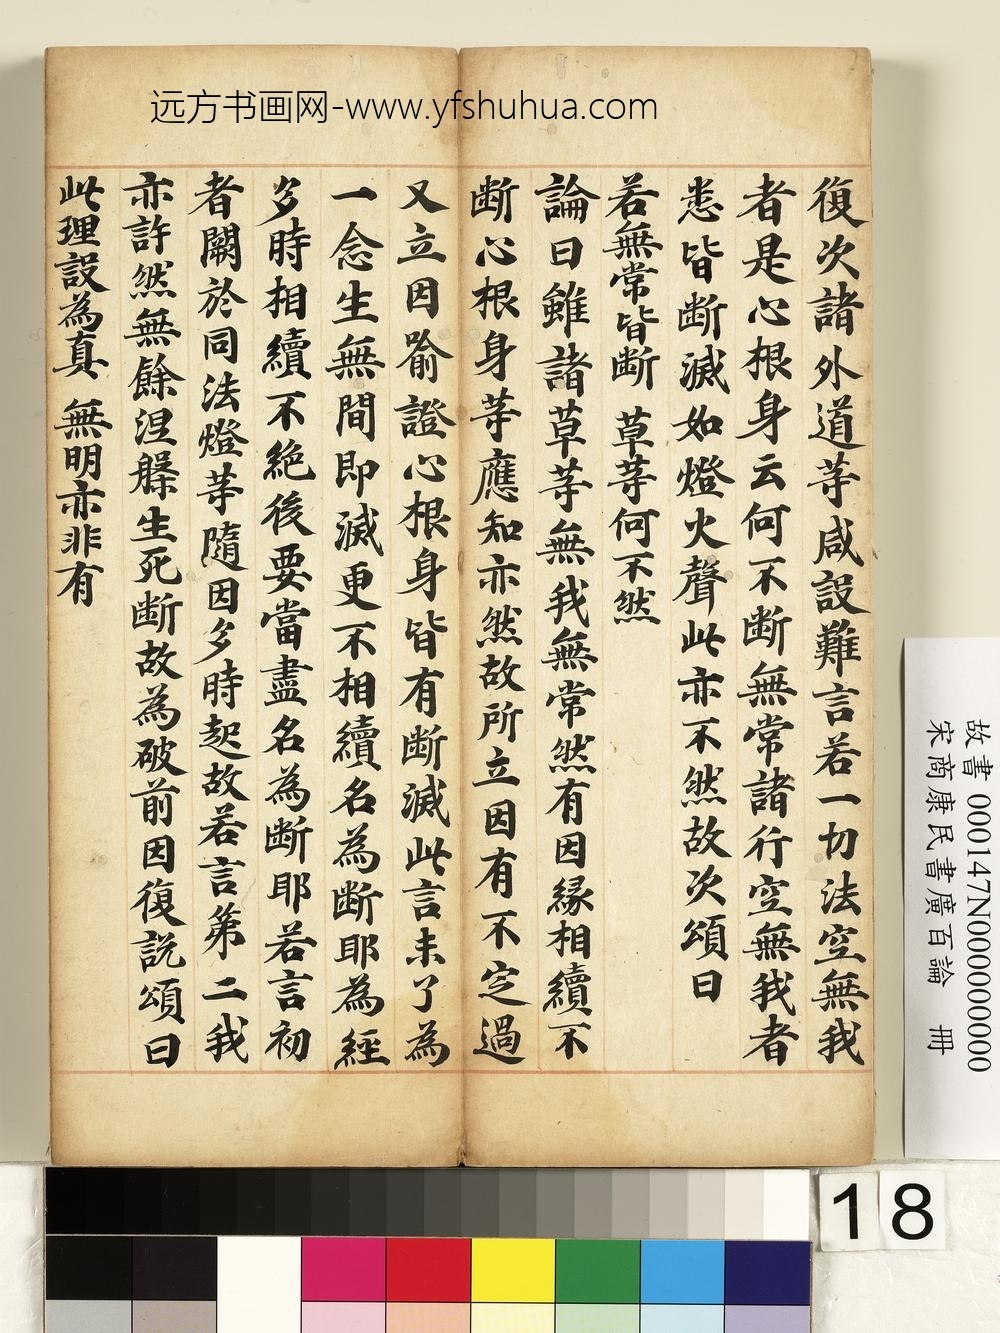 远方书画网-www.yfshuhua.com
復次諸外道等咸設難言若一切法空無我
者是心根身云何不断無常諸行空無我者
悉皆断滅如燈火聲此亦不然故次頌曰
若無常皆断 草等何不然
論曰雖諸草等無我無常然有因緣相續不
断心根身等應知亦然故所立因有不定過
又立因喻證心根身皆有断滅此言未了為
一念生無間即滅更不相續名為断耶為經
多時相續不絶後要當盡名為断耶若言初
者闕於同法燈等隨因多時起故若言第二我
亦許然無餘涅槃生死断故為破前因復説頌曰
此理設為真 無明亦非有
故書 000147N000000000
宋商康民書廣百論 冊
18